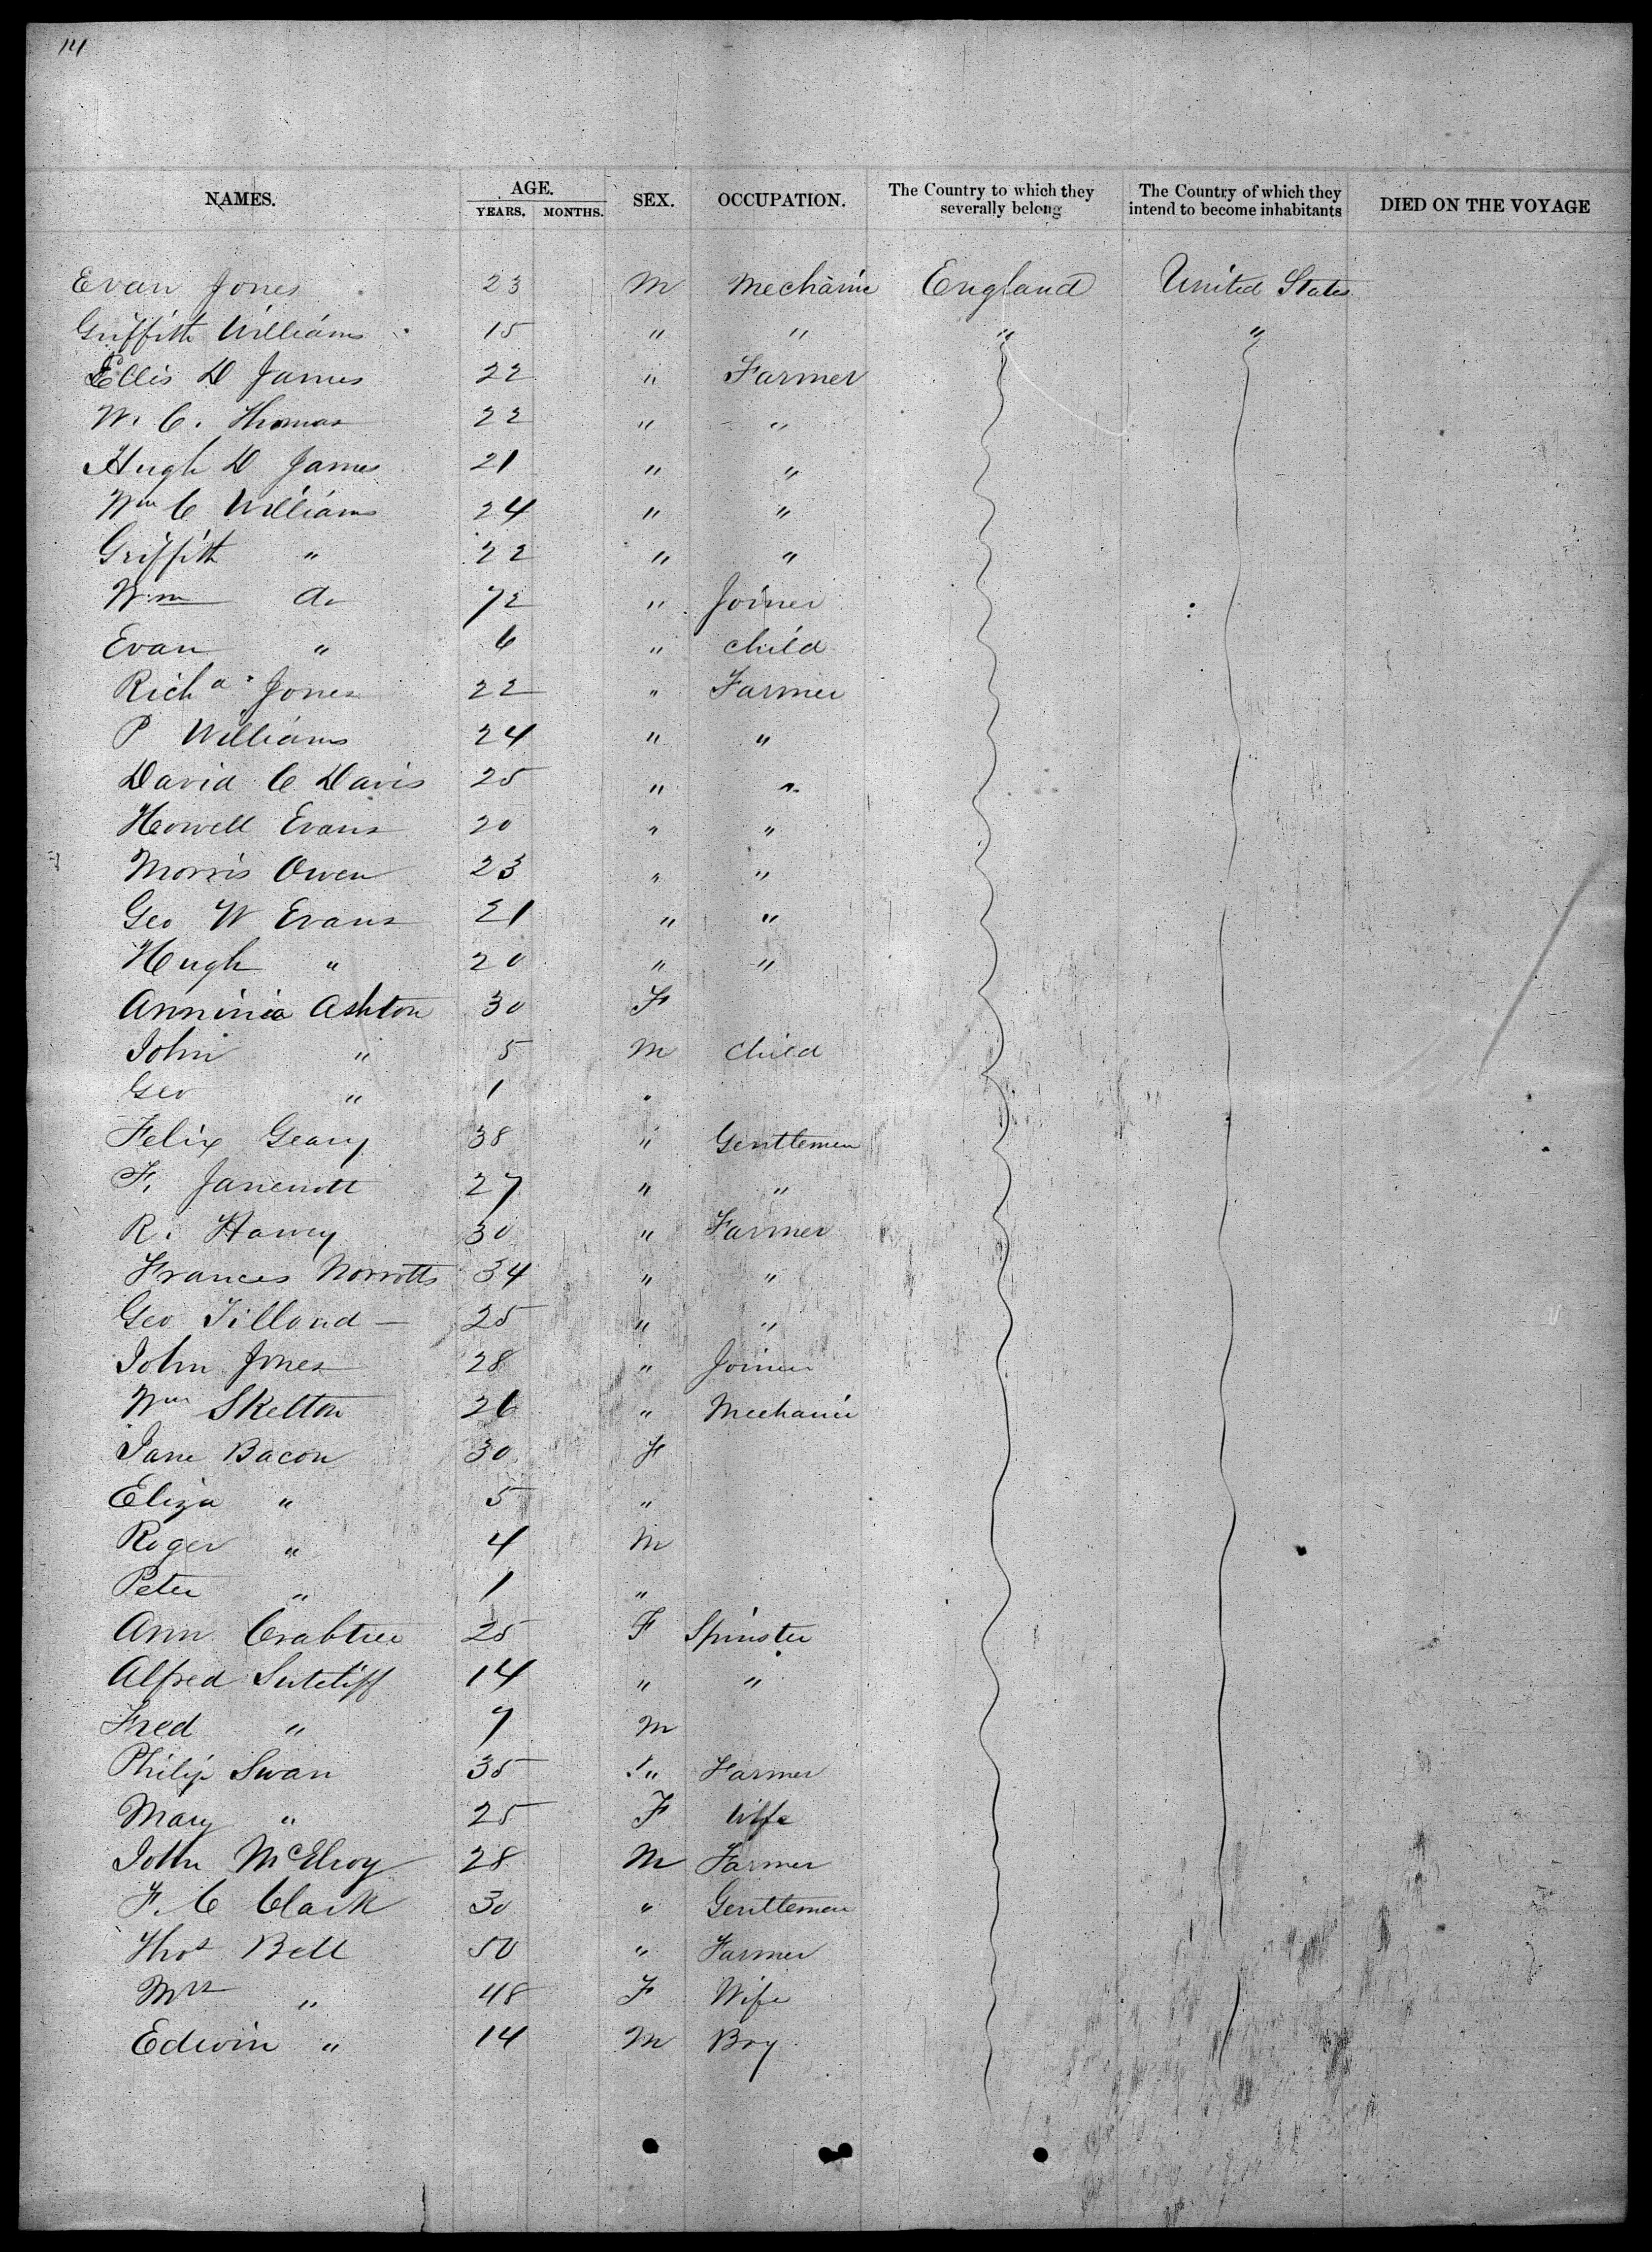 14
NAMES. AGE. YEARS. MONTHS. SEX. OCCUPATION. The Country to which they severally belong The Country of which they intend to become inhabitants DIED ON THE VOYAGE
Evan Jones 23 M Mechanic England United States
Griffith Williams 15 " " " "
Ellis D James 22 " Farmer
W. C. Thomas 22 " "
Hugh D James 21 " "
Wm C Williams 24 " "
Griffith " 22 " "
Wm 72 " Joiner
Evan " 6 " child
Richd Jones 22 " Farmer
P Williams 24 " "
David C Davis 25 " "
Howell Evans 20 " "
Morris Owen 23 " "
Geo W Evans 21 " "
Hugh " 20 " "
Anninia Ashton 30 F
John " 5 M Child
Geo " 1 "
Felix Geary 38 " Gentlemen
F. 27 " "
R. 30 " Farmer
Frances Norrotts 34 " "
Geo Tilloud 25 " "
John Jones 28 " Joiner
Wm Skelton 26 " Mechanic
Jane Bacon 30 F
Eliza " 5 "
Roger " 4 M
Peter " 1 "
Ann Crabtree 25 F Spinster
Alfred Sutcliff 14 " "
Fred " 7 M
Philip Swan 35 " Farmer
Mary " 25 F Wife
John McElroy 28 M Farmer
F. C Clark 30 " Gentlemen
Thos Bell 50 " Farmer
Mrs " 48 F Wife
Edwin " 14 M Boy